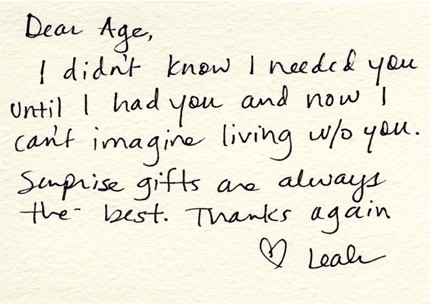 Dear Age,
I didn't know I needed you
until I had you and now I
can't imagine living w/o you.
Surprise gifts are always
the best. Thanks again
♡ Leah